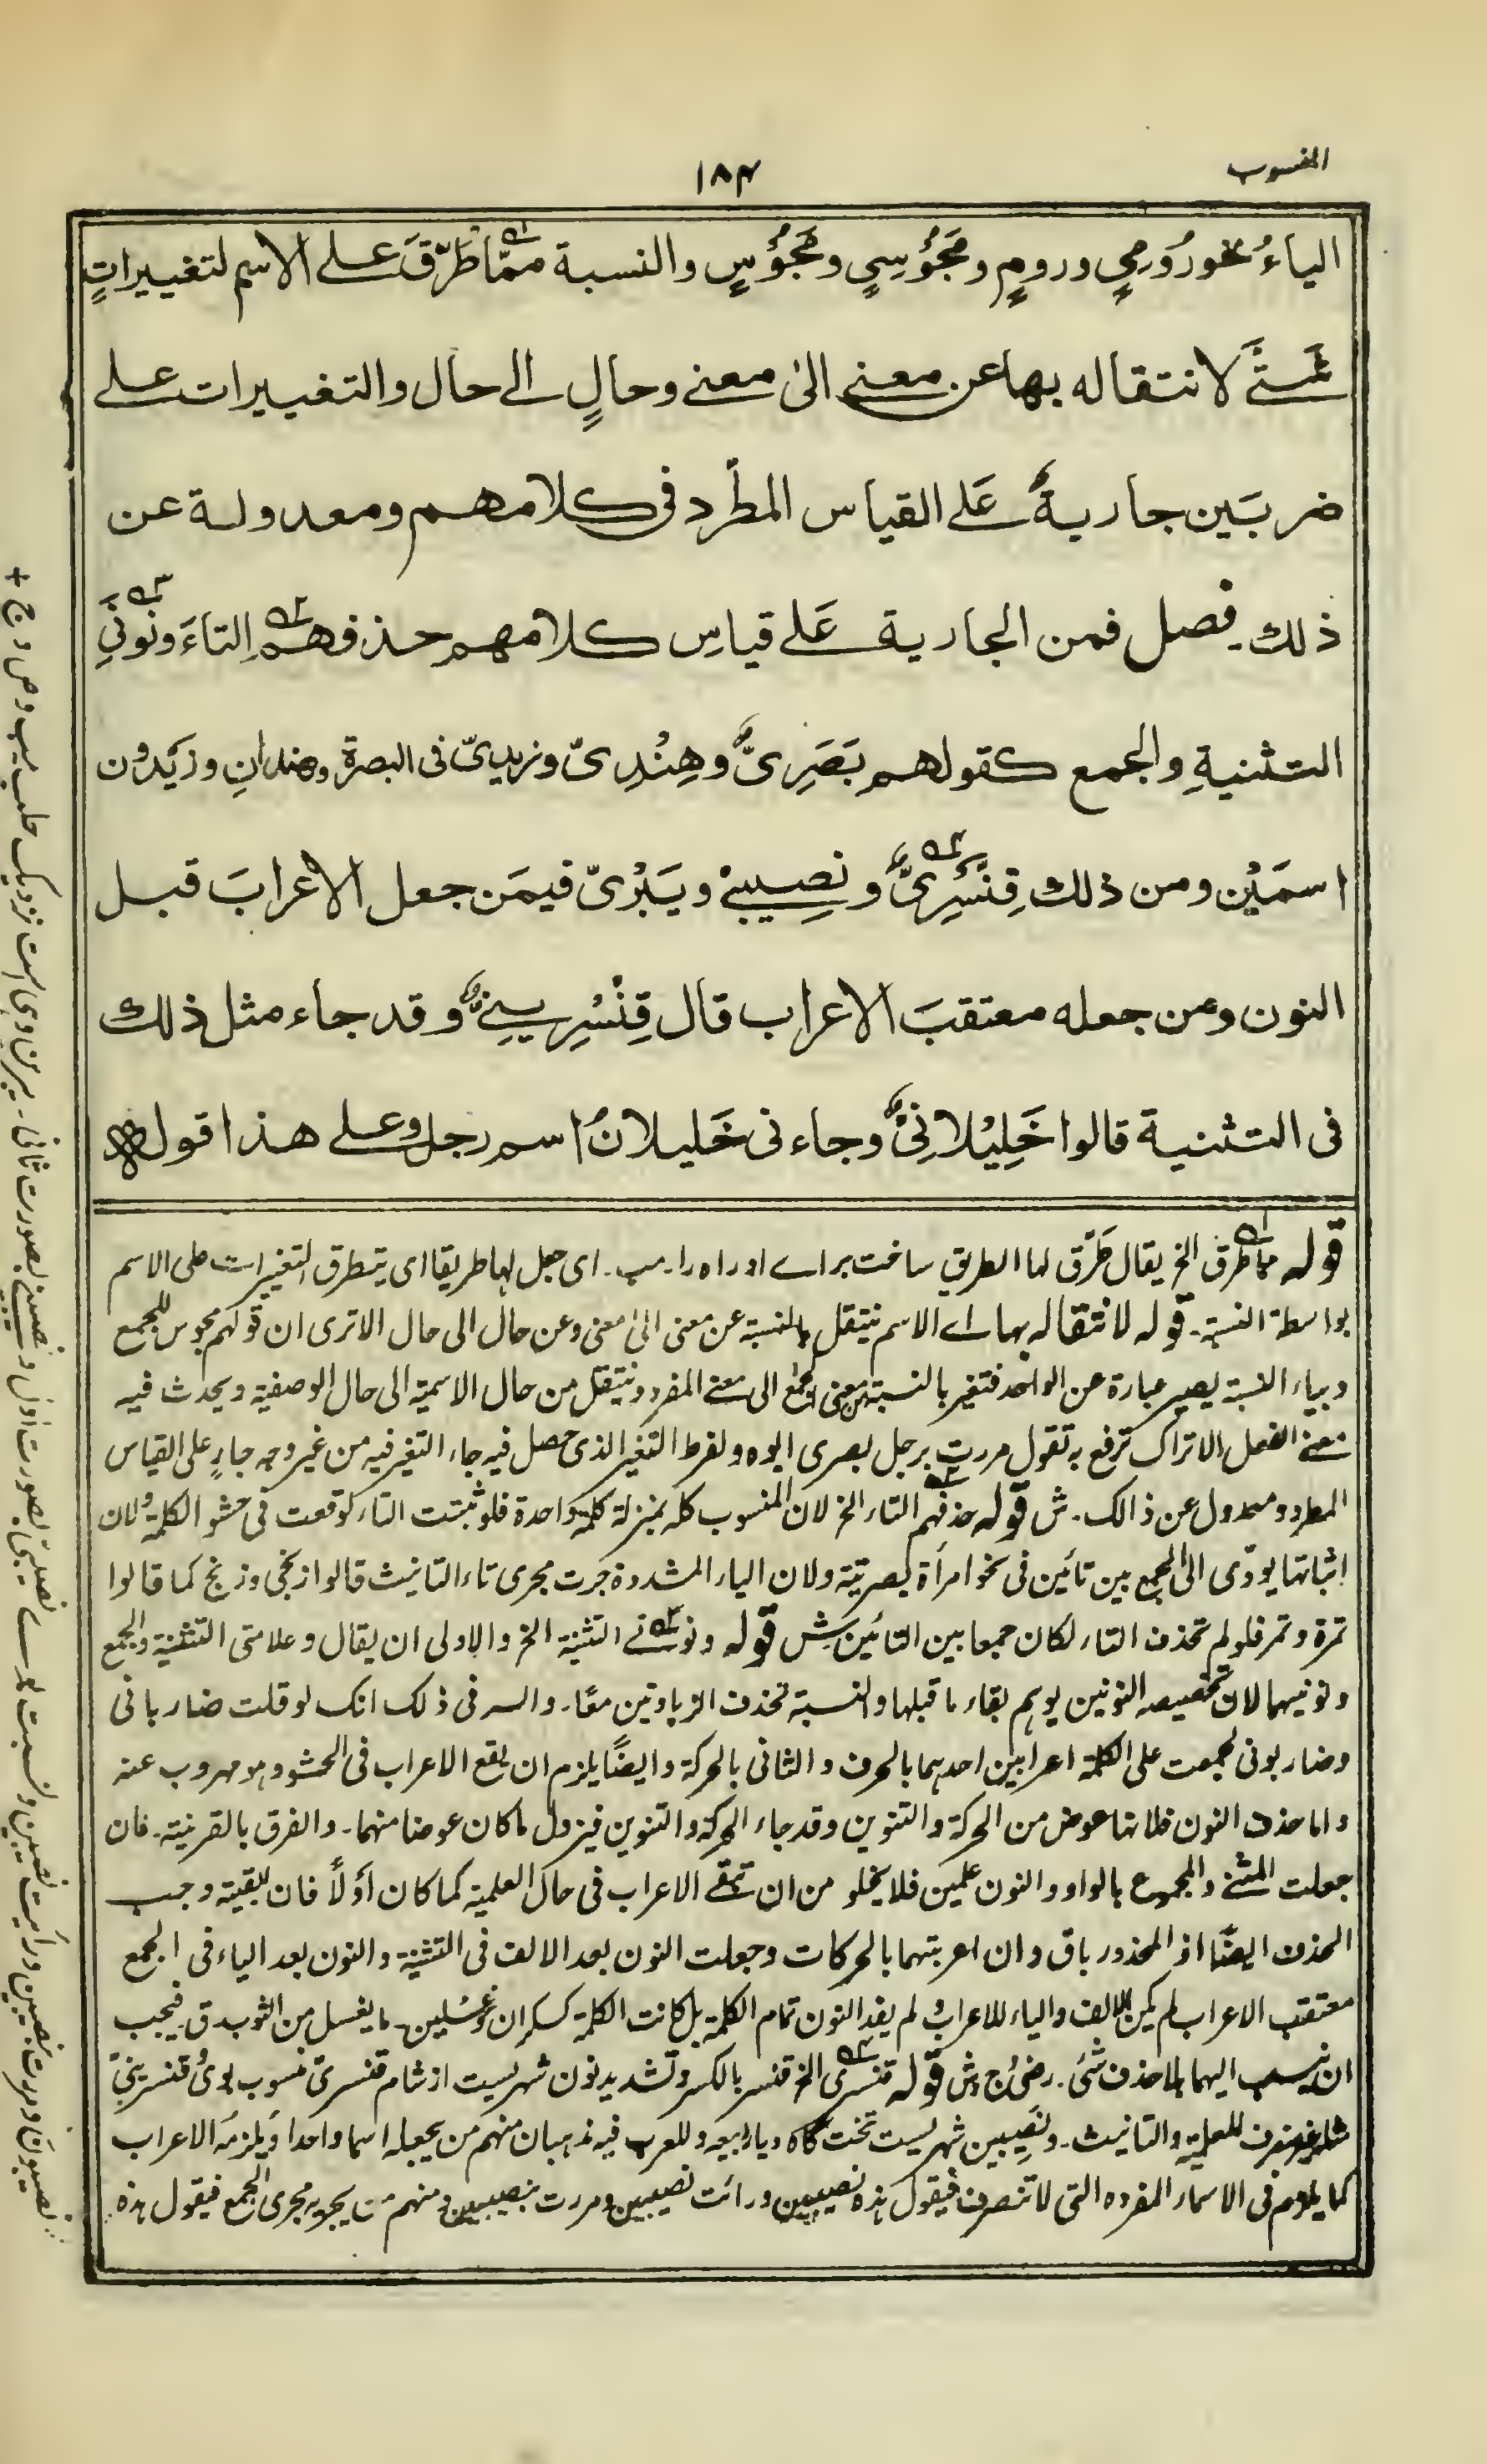 المنسوب
١٨٤
الياءُ نحو رُوْمِيٍّ ورومٍ ومَجُوْسِيٍ ومَجُوْسٍ والنسبة ممّا طَرَّقَ على الاسم لتغييراتٍ
شَتَّى لانتقاله بها عن معنى الىٰ معنى وحالٍ الى حال والتغييرات على
ضربَين جاريةٌ عَلى القياس المطّرد فى كلامهم ومعدولة عن
ذلك فصل فمن الجارية عَلى قياسِ كلامهم حذفهم التاءَ ونونَىِ
التثنيةِ والجمع كقولهم بَصَرِىٌّ وهِنْدِىّ وزيدىّ فى البصرة وهندانِ وزَيْدون
اسمَيْن ومن ذلك قِنَّسْرِىٌّ ونصِيبىّ ويَبْرىّ فيمَن جعل الاعرابَ قبل
النون ومن جعله معتقبَ الاعراب قال قِنَّسْرِينىٌّ وقد جاء مثل ذلك
فى التثنية قالوا خَلِيْلانِىٌّ وجاء نى خَليلانُ اسم رجل وعلى هذا قوله
قوله مما طرق الخ يقال طَرَّق لها الطريق ساخت براے او راہ را۔ مب۔ اى جعل لها طريقا اى يتطرق التغييرات على الاسم
بواسطة النسبة۔ قوله لانتقاله بها اے الاسم ينتقل بالنسبة عن معنى الىٰ معنى وعن حال الى حال الا ترى ان قولهم مجوس للجمع
وبياء النسبة يصير عبارة عن الواحد فتغير بالنسبة من معنى الجمع الى معنے المفرد وينتقل من حال الاسمية الى حال الوصفية ويحدث فيه
معنے الفعل الا تراك ترفع به تقول مررت برجل بصرى ابوه ولفرط التغير الذى حصل فيه جاء التغير فيه من غير وجه جارٍ على القياس
المطرد ومعدول عن ذالك۔ ش قوله حذفهم التاء الخ لان المنسوب كله بمنزلة كلمة واحدة فلو ثبتت التاء لوقعت فى حشو الكلمة ولان
اثباتها يودّى الى الجمع بين تأئين فى نحو امرأة بصرتية ولان الياء المشددة جرت مجرى تاء التانيث قالوا زنجى وزنج كما قالوا
تمرة وتمر فلو لم تحذف التاء لكان جمعا بين التائين۔ ش قوله ونونے التثنية الخ والاولى ان يقال وعلامتى التثنية والجمع
ونونيهما لان تخصيصه النونين يوهم بقاء ما قبلها والنسبة تحذف الزيادتين معًا۔ والسر فى ذلك انك لو قلت ضاربانى
وضاربونى لجمعت على الكلمة اعرابين احدهما بالحرف والثانى بالحركة وايضًا يلزم ان يقع الاعراب فى الحشو وهو مهروب عنه
واما حذف النون فلانها عوض من الحركة والتنوين وقد جاء الحركة والتنوين فيزول ما كان عوضا منهما۔ والفرق بالقرينة۔ فان
جعلت المثنے والمجموع بالواو والنون علمين فلا يخلو من ان تبقے الاعراب فى حال العلمية كما كان اوّلاً فان بقيته وجب
الحذف ايضًا اذ المحذور باق وان اعربتهما بالحركات وجعلت النون بعد الالف فى التثنية والنون بعد الياء فى الجمع
معتقب الاعراب لم يكن الالف والياء للاعراب ولم يفد النون تمام الكلمة بل كانت الكلمة كسكران وغسلين۔ ما يغسل من الثوب ق۔ فيجب
ان ينسب اليهما بلا حذف شئ۔ رضى ج ش قوله قنسرى الخ قنسر بالكسر وتشديد نون شهريست از شام قنسرىّ منسوب بوى قنسرينىّ
مثله غير منصرف للعلمية والتانيث۔ ونَصِيبين شهريست تخت گاه ديار ربيعه وللعرب فيه مذهبان منهم من يجعله اسما واحدا ويلزمه الاعراب
كما يلزم فى الاسماء المفرده التى لا تنصرف فيقول هذه نصيبين ورائت نصيبين ومررت بنصيبين ومنهم من يجريه مجرى الجمع فيقول هذه
نصيبون ومررت بنصيبين ورأيت نصيبين ونسبت